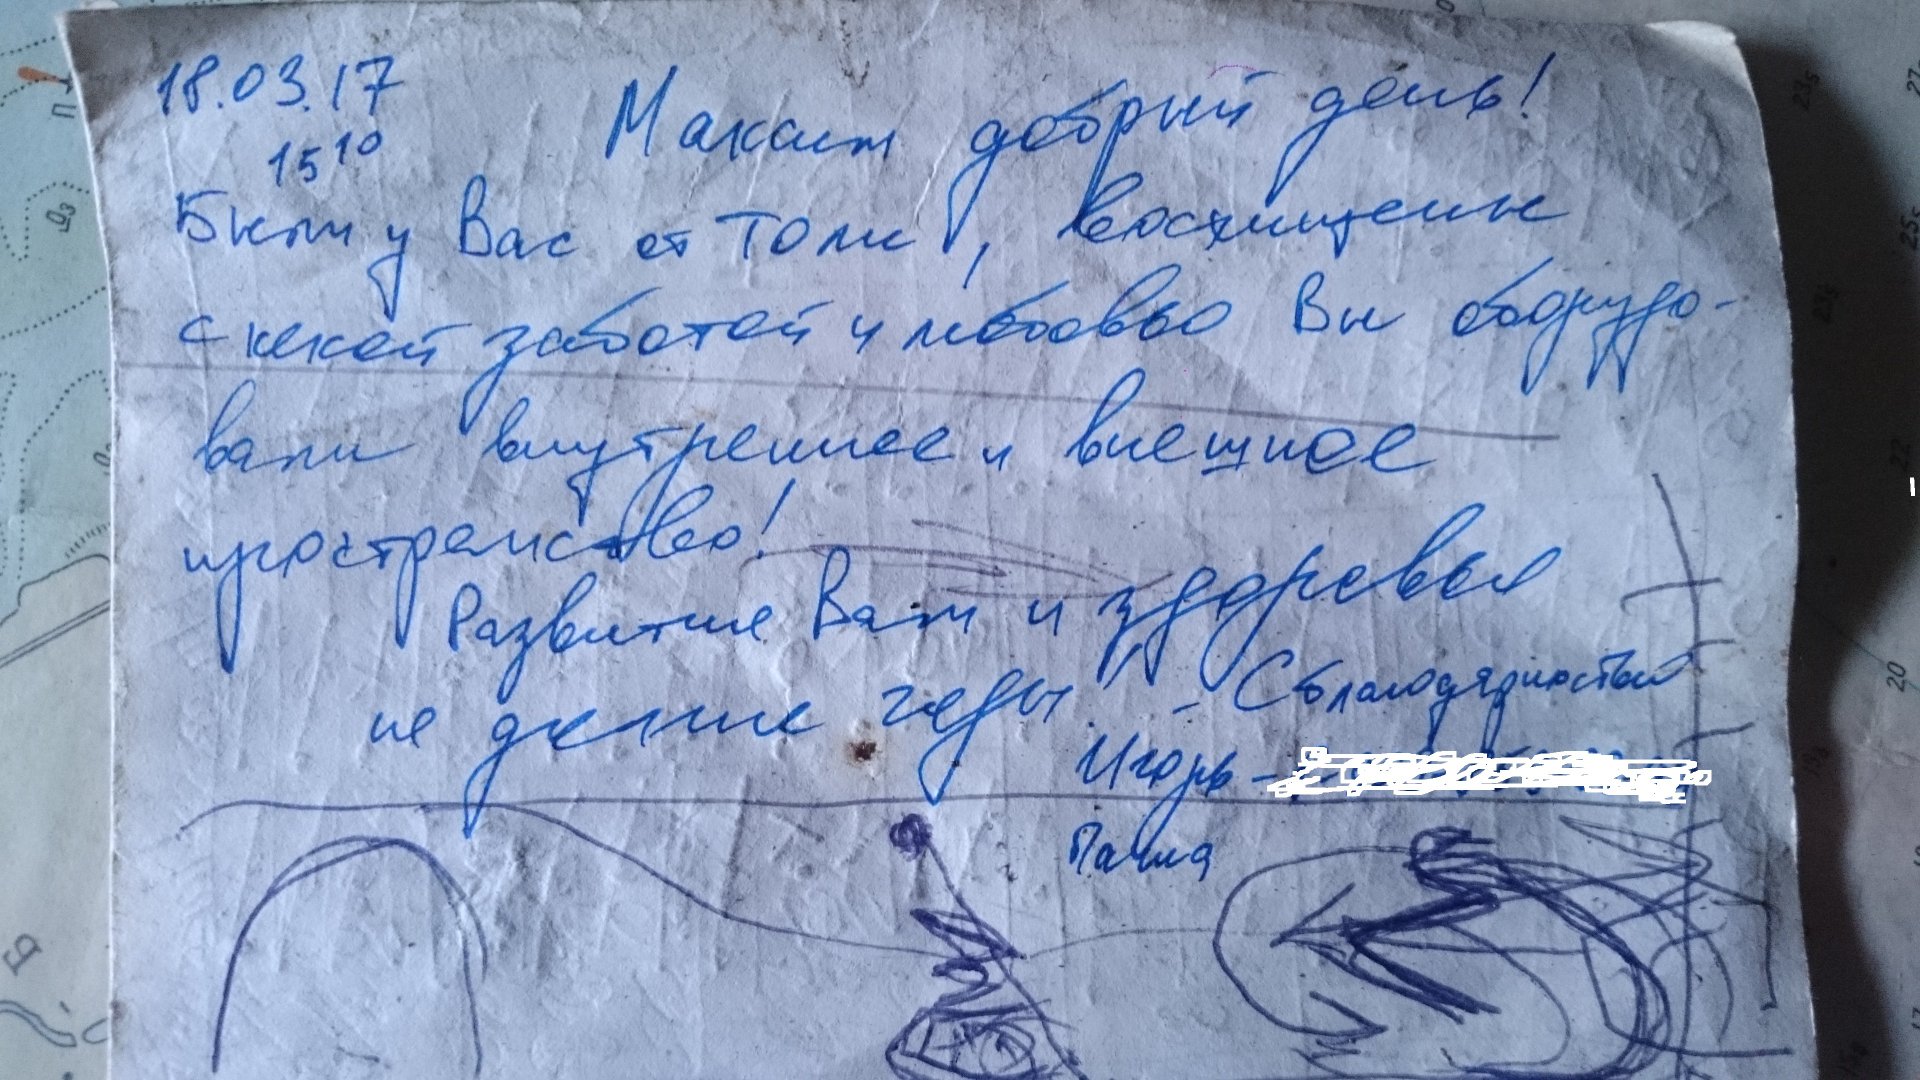 18.03.17
15 10
Максим добрый день!
Были у Вас от Толи, восхищены
с какой заботой и любовью Вы оборудо-
вали внутреннее и внешнее
пространство!
Развития Вам и здоровья
на долгие годы. - С благодарностью
Игорь -
Паша